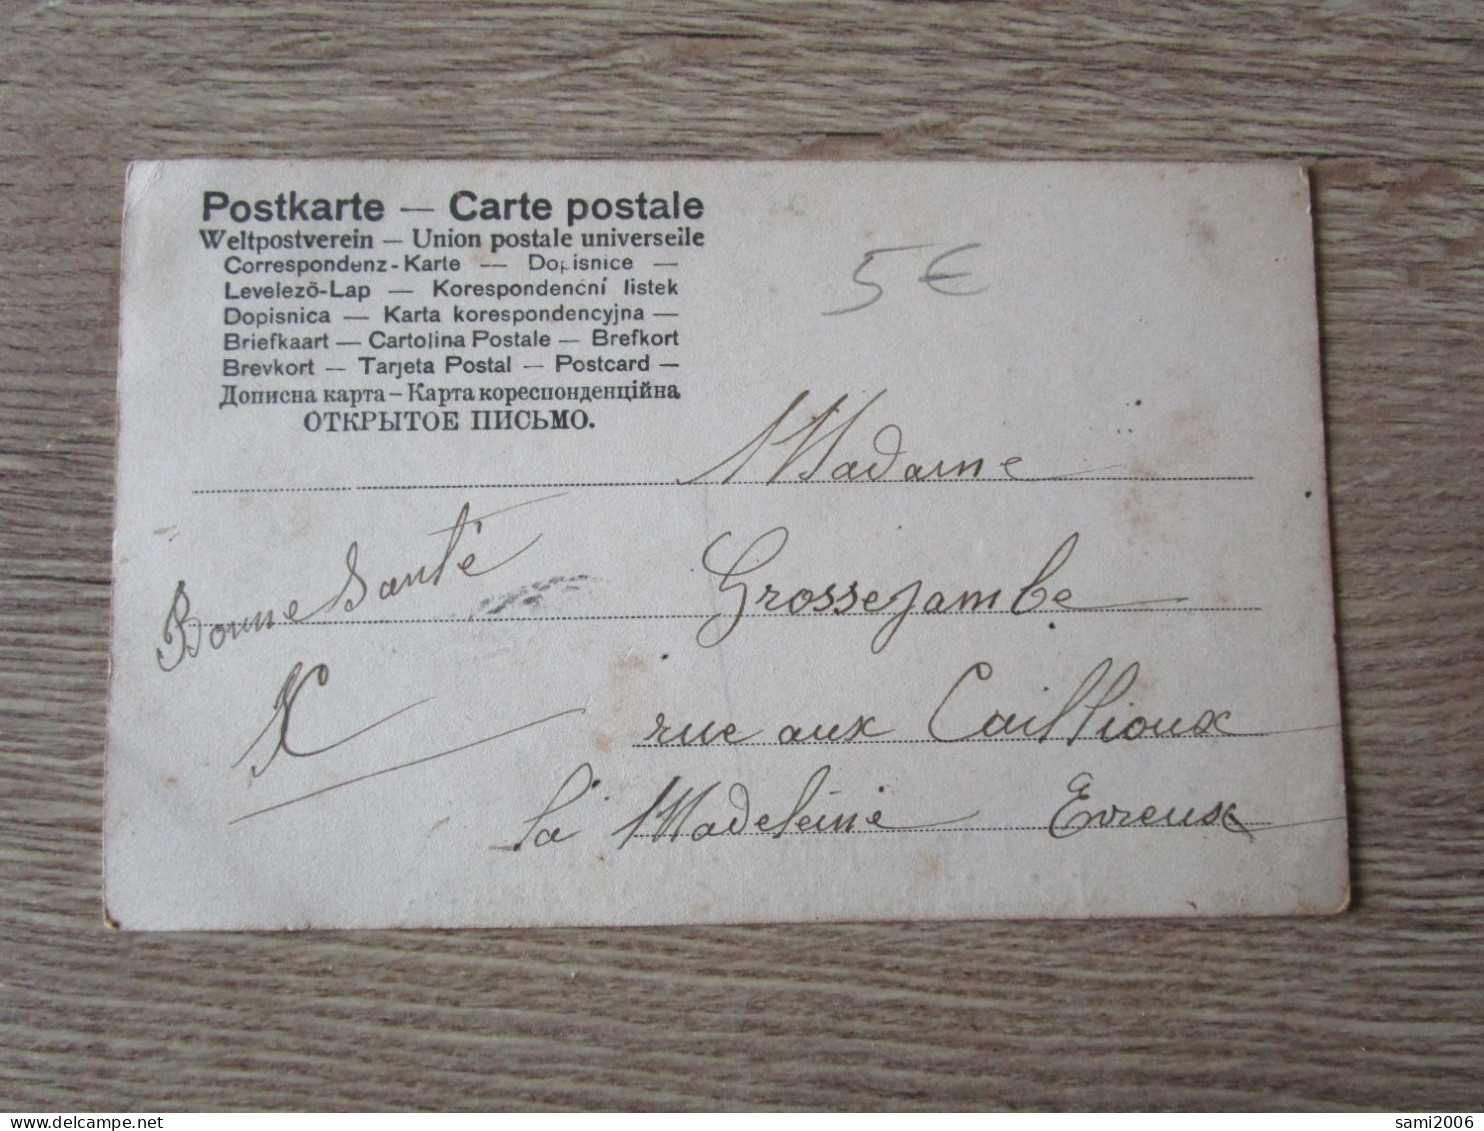 Postkarte — Carte postale
Weltpostverein — Union postale universelle
Correspondenz-Karte — Dopisnice —
Levelező-Lap — Korespondenční listek
Dopisnica — Karta korespondencyjna —
Briefkaart — Cartolina Postale — Brefkort
Brevkort — Tarjeta Postal — Postcard —
Дописна карта – Карта кореспонденційна
ОТКРЫТОЕ ПИСЬМО.
5€
Madame
Bonne Santé
Grossejambe
X
rue aux Caillioux
la Madeleine Evreux
delcampe.net
sami2006